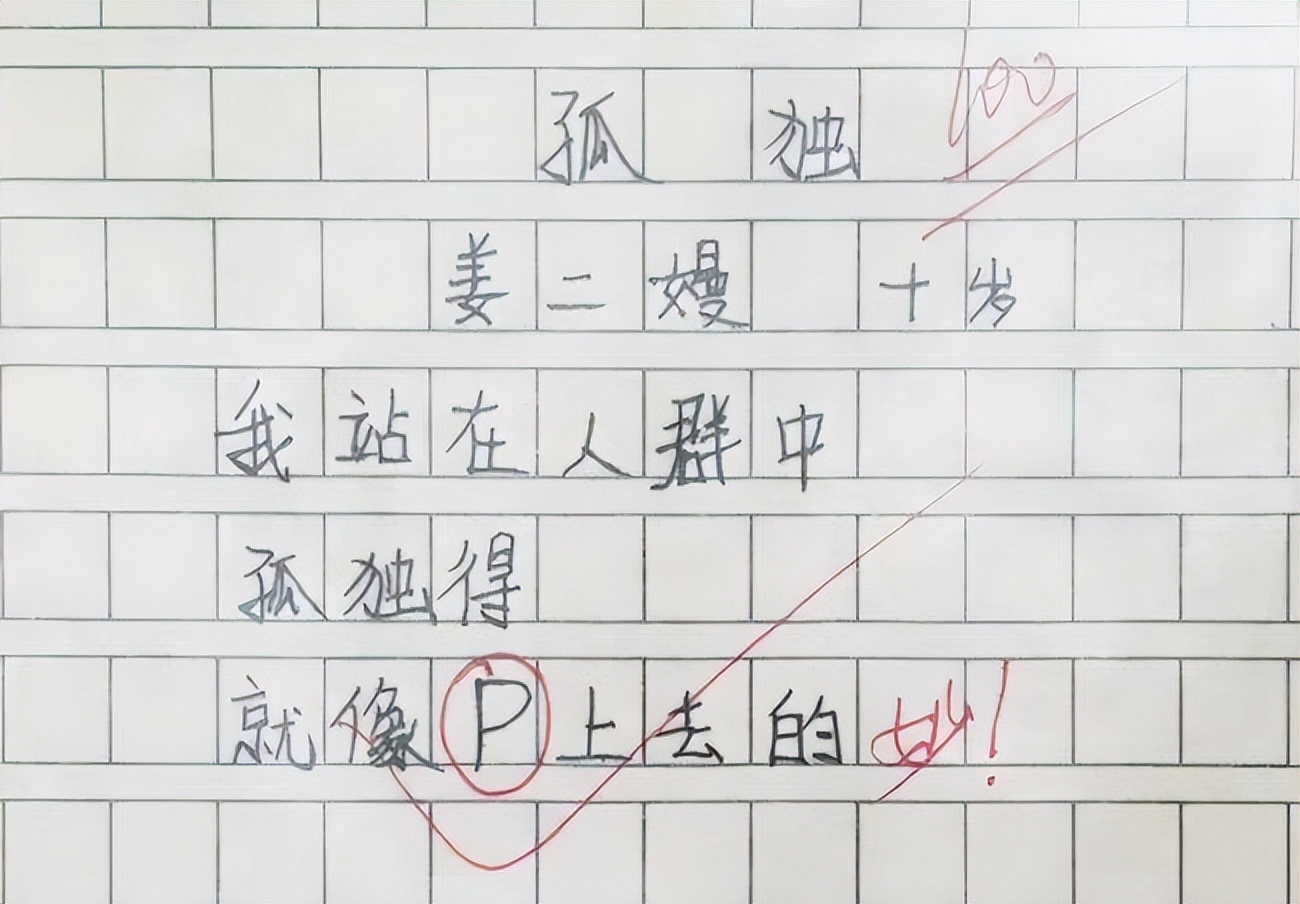 孤独 100
姜二嫚 十岁
我站在人群中
孤独得
就像P上去的 妙!